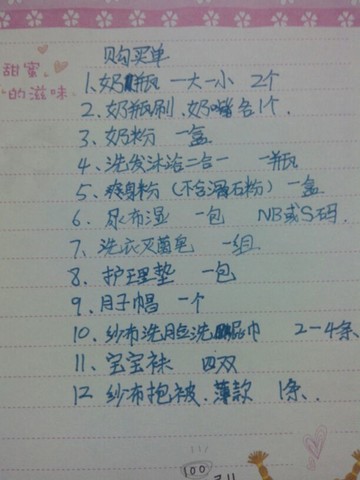 购买单
甜蜜
的滋味
1、奶瓶 一大一小 2个
2、奶瓶刷、奶嘴各1个.
3、奶粉 一盒
4、洗发沐浴二合一 一瓶
5、爽身粉（不含滑石粉）一盒
6、尿布湿 一包 NB或S码.
7、洗衣灭菌皂 一组
8、护理垫 一包
9、月子帽 一个
10、纱布洗脸洗屁巾 2-4条
11、宝宝袜 四双
12 纱布抱被、薄款 1条.
100